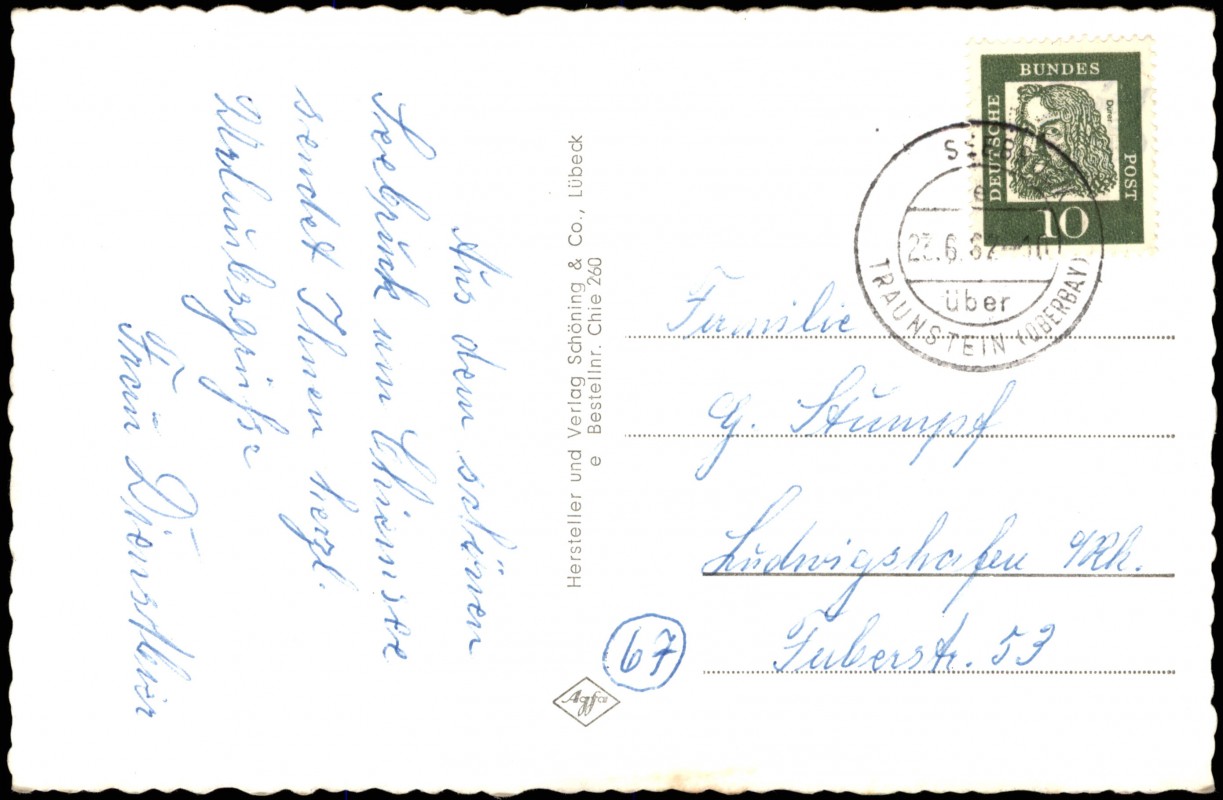 Aus dem schönen
Seebruck am Chiemsee
sendet Ihnen herzl.
Urlaubsgrüsse
Frau
Hersteller und Verlag Schöning & Co., Lübeck
e Bestellnr. Chie 260
DEUTSCHE
BUNDES
POST
Dürer
10
23.6.62-10
über
TRAUNSTEIN (OBERBAY)
Familie
G. Stumpf
Ludwigshafen a/Rh.
53
67
Agfa